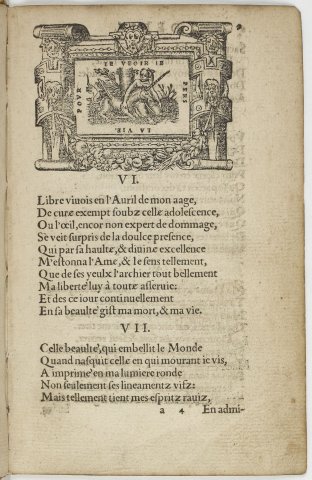 POUR LE VEOIR JE PERS
LA VIE.
VI.
Libre viuois en l'Auril de mon aage,
De cure exempt soubz celle adolescence,
Ou l'œil, encor non expert de dommage,
Se veit surpris de la doulce presence,
Qui par sa haulte, & diuine excellence
M'estonna l'Ame, & le sens tellement,
Que de ses yeulx l'archier tout bellement
Ma liberté luy à toute asseruie:
Et des ce iour continuellement
En sa beaulté gist ma mort, & ma vie.
VII.
Celle beaulté, qui embellit le Monde
Quand nasquit celle en qui mourant ie vis,
A imprimé en ma lumiere ronde
Non seulement ses lineamentz vifz:
Mais tellement tient mes espritz rauiz,
a 4 En admi-